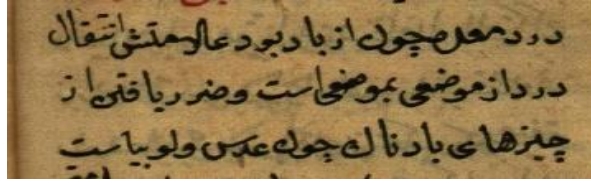 درد معده چون از باد بود علامتش انتقال
درد از موضعی بموضعی است و ضرر یافتن از
چیزهای بادناک چون عدس و لوبیاست